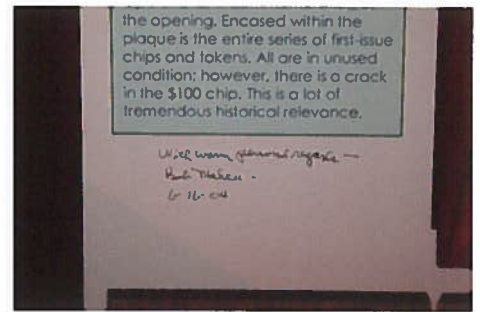 the opening. Encased within the
plaque is the entire series of first-issue
chips and tokens. All are in unused
condition; however, there is a crack
in the $100 chip. This is a lot of
tremendous historical relevance.
With warm personal regards —
Bob
6-16-04